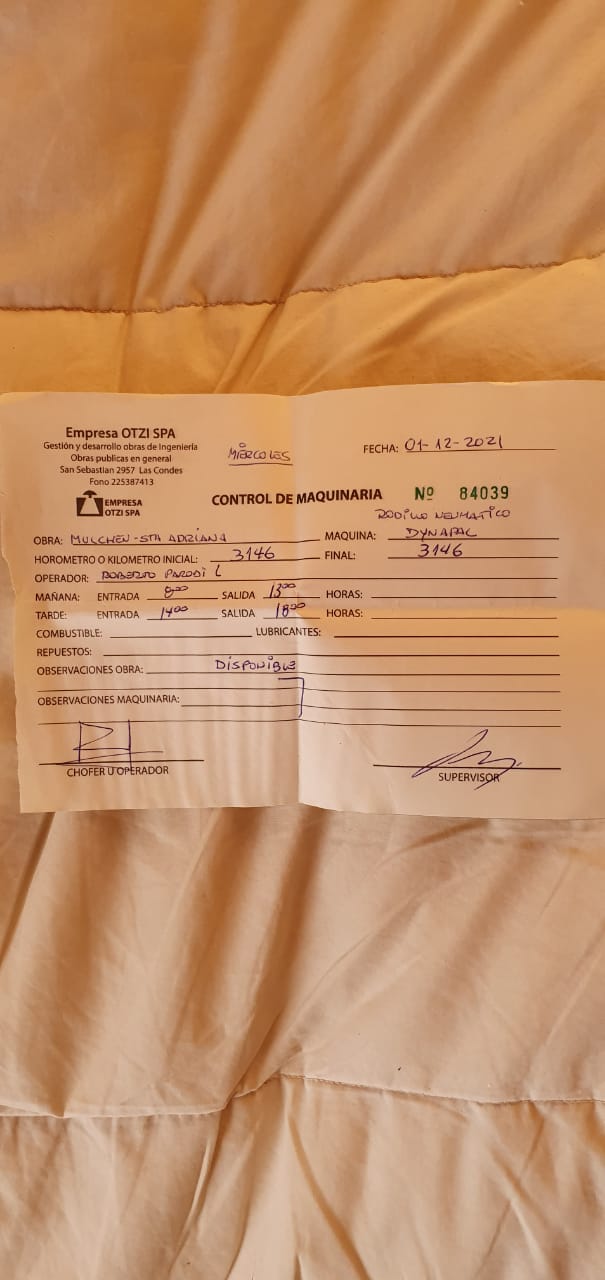 Empresa OTZI SPA
Gestión y desarrollo obras de Ingeniería
Obras publicas en general
San Sebastian 2957 Las Condes
Fono 225387413
EMPRESA
OTZI SPA
MIERCOLES
FECHA: 01-12-2021
CONTROL DE MAQUINARIA Nº 84039
RODILLO NEUMATICO
OBRA: MULCHEN-STA ADRIANA MAQUINA: DYNAPAC
HOROMETRO O KILOMETRO INICIAL: 3146 FINAL: 3146
OPERADOR: ROBERTO PARODI L
MAÑANA: ENTRADA 8:00 SALIDA 13:00 HORAS:
TARDE: ENTRADA 14:00 SALIDA 18:00 HORAS:
COMBUSTIBLE: LUBRICANTES:
REPUESTOS:
OBSERVACIONES OBRA: DISPONIBLE
OBSERVACIONES MAQUINARIA:
CHOFER U OPERADOR
SUPERVISOR